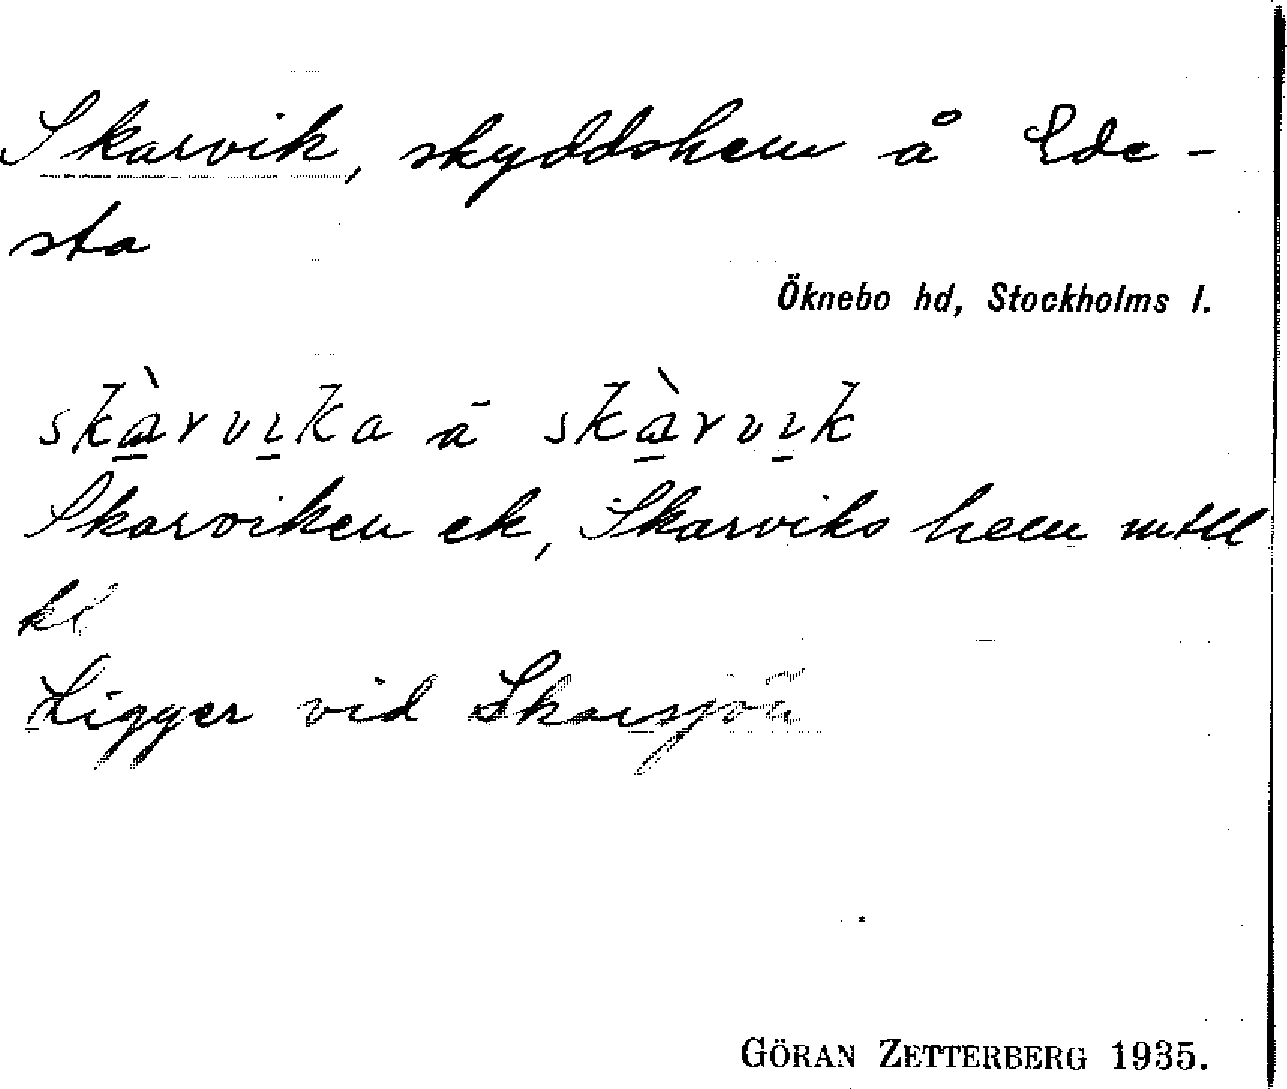 Skarvik, skyddshem å Ede-
sta
Öknebo hd, Stockholms l.
skàrvıka ā skàrvık
Skarviken ek, Skarviks hem mtll
kl
Ligger vid Skarsjön
GÖRAN ZETTERBERG 1935.